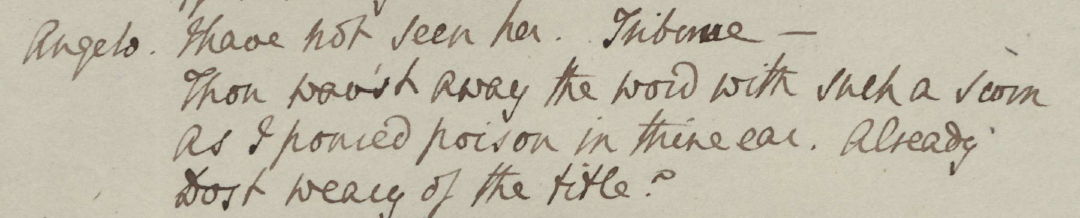 Angelo. I have not seen her. Tribune —
Thou wav'st away the word with such a scorn
As I poured poison in thine ear. Already
Dost weary of the title?